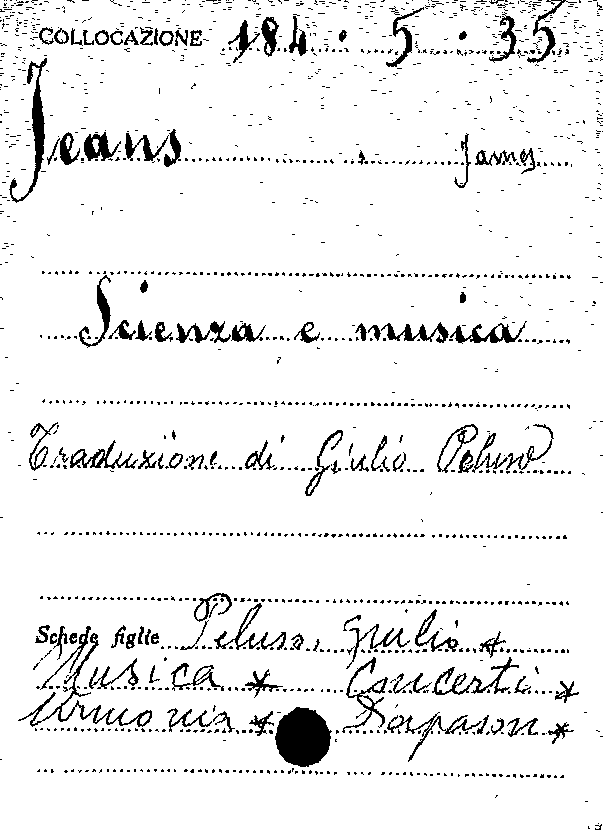 COLLOCAZIONE 184 · 5 · 35
Jeans , James
Scienza e musica
Traduzione di Giulio Peluso
Schede figlie Peluso, Giulio *
Musica * Concerti *
Armonia * Diapason *